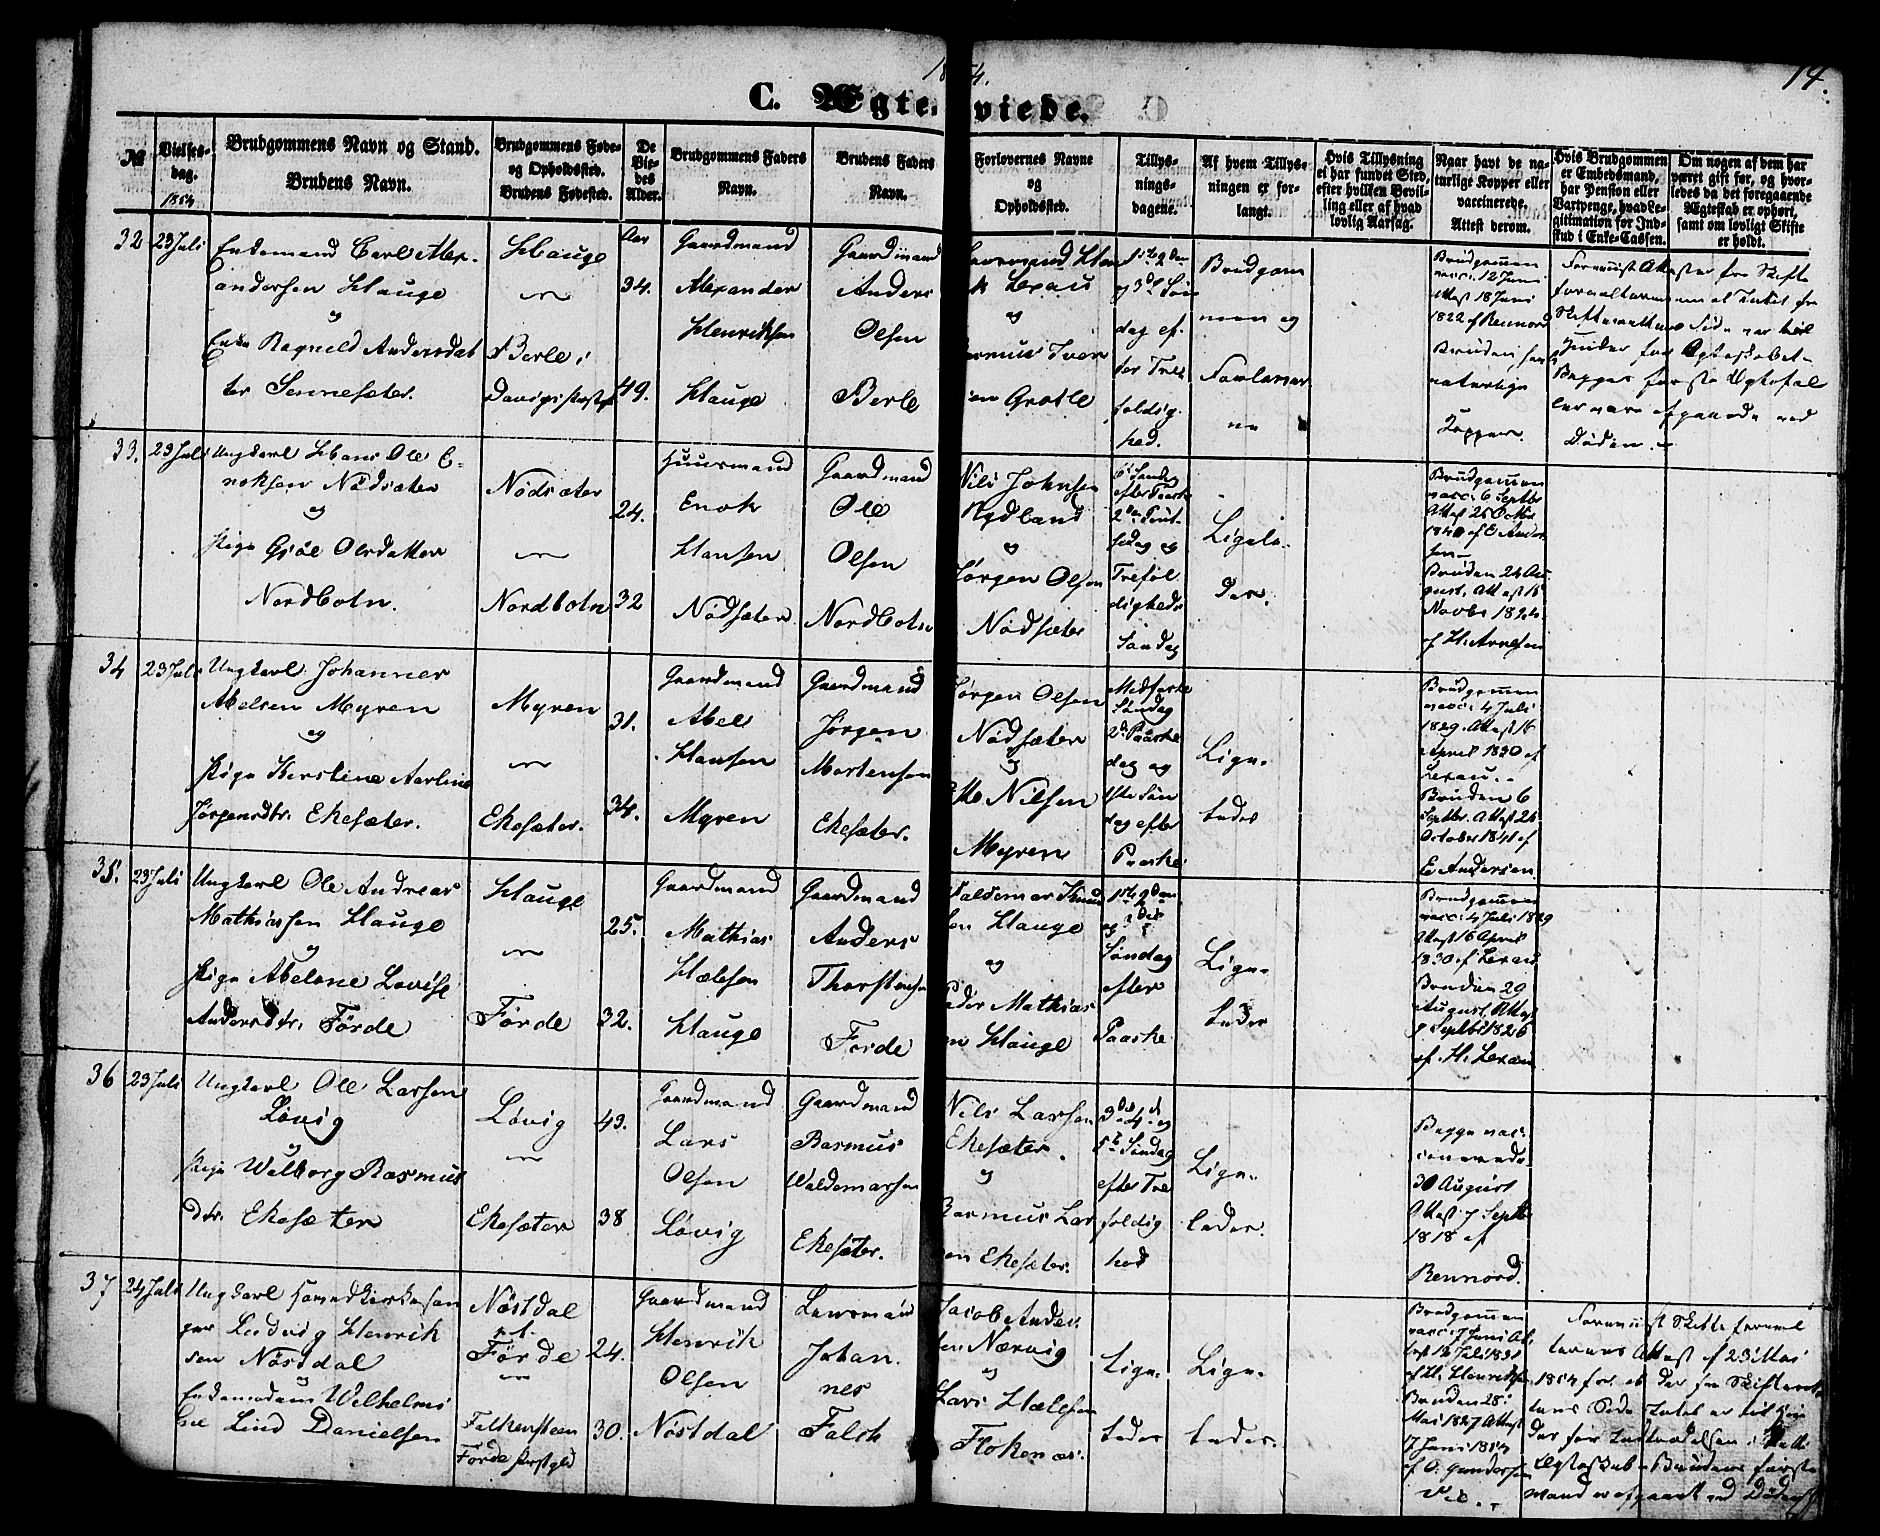 1854.
14.
C. Ægteviede.
No
Vielses-
dag.
1854
Brudgommens Navn og Stand.
Brudens Navn.
Brudgommens Føde-
og Opholdssted.
Brudens Fødested.
De
Vie-
des
Alder.
Brudgommens Faders
Navn.
Brudens Faders
Navn.
Forlovernes Navne
og
Opholdssted.
Tillys-
nings-
dagene.
Af hvem Tillys-
ningen er for-
langt.
Hvis Tillysning
ei har fundet Sted,
efter hvilken Bevil-
ling eller af hvad
lovlig Aarsag.
Naar havt de na-
turlige Kopper eller
vaccinerede.
Attest derom.
Hvis Brudgommen
er Embedsmand,
har Pension eller
Vartpenge, hvad Le-
gitimation for Ind-
skud i Enke-Cassen.
Om nogen af dem har
været gift før, og hvor-
ledes da det foregaaende
Ægteskab er ophørt,
samt om lovligt Skifte
er holdt.
32
23 Juli
Enkemand Carl Alex-
andersen Hauge
og
Enke Ragnild Andersdat
ter Sennesæter.
Hauge
Berle i
Aar
34.
49.
Gaardmand
Alexander
Henriksen
Hauge
Gaardmand
Anders
Olsen
Berle
Lexau
og
Iver
Grotle
1ste 2den
og 3die Søn
dag ef-
ter Tre
foldig-
hed.
Brudgom
men og
Forlover
ne
Brudgommen
vacc. 12 Juni
Attest 18 Juni
1822 af Rennord
Bruden har
naturlige
Kopper.
Begges første Ægtefæl
ler ere afgaaede ved
Døden.
33.
23 Juli
Ungkarl Hans Ole E-
noksen Nødsæter
og
Pige Gjøe Olsdatter
Nordbotn.
Nødsæter
Nordbotn
24.
32
Huusmand
Enok
Hansen
Nødsæter
Gaardmand
Ole
Olsen
Nordbotn
Nils Johnsen
Rydland
og
Jørgen Olsen
Nødsæter
6 Søndag
efter Paaske
2den Pint-
sedag og
Trefol
digheds
Søndag
Ligele-
des.
Brudgommen
vacc. 6 Septbr
Attest 25 Octbr
1840 af E Ander
sen
Bruden 24 Au-
gust, Attest 15
Novbr 1824
af H. Arnesen
34
23 Juli
Ungkarl Johannes
Abelsen Myren
og
Pige Kirstine Aarline
Jørgensdtr. Ekesæter.
Myren
Ekesæter.
31.
34.
Gaardmand
Abel
Hansen
Myren
Gaardmand
Jørgen
Mortensen
Ekesæter.
Jørgen Olsen
Nødsæter
og
Nilsen
Myren
Midfaste
Søndag
2den Paaske
dag og
1ste Søn
dag efter
Paaske
Lige-
ledes
Brudgommen
vacc. 4 Juli
1829. Attest 16
April 1830 af
Lexau.
Bruden 6
Septbr. Attest 26
October 1841 af
E Andersen
35.
23 Juli
Ungkarl Ole Andreas
Mathiassen Hauge
og
Pige Abelone Lovise
Andersdtr. Förde
Hauge
Förde
25.
32.
Gaardmand
Mathias
Hauge
Gaardmand
Anders
Thorstensen
Förde
Valdemar Knud
sen Hauge
og
Peder Mathias
en Hauge
1ste 2den
og 3die
Søndag
efter
Paaske
Lige-
ledes
Brudgommen
vacc. 4 Juli 1829
Attest 16 April
1830 af Lexau
Bruden 29
August, Attest
9 Septbr 1826
af H. Lexau
36
23 Juli
Ungkarl Ole Larsen
Løvig
og
Pige Walborg Rasmus
dtr. Ekesæter
Løvig
Ekesæter
43.
38
Gaardmand
Lars
Olsen
Løvig
Gaardmand
Rasmus
Waldemarsen
Ekesæter.
Nils Larsen
Ekesæter.
og
Rasmus Lar
sen Ekesæter.
3die 4de og
5te Søndag
efter Tre
foldig
hed
Lige-
ledes.
Begge vac-
cinerede
30 August
Attest 7 Septbr
1818 af
Rennord.
37
24 Juli
Ungkarl
Ludvig Henrik
sen Nøstdal
og
Enkemadame Wilhelmi
ne Lind Danielsen
Nøstdal
p.t.
Förde
Falkensteen
Förde
24.
30.
Gaardmand
Henrik
Olsen
Nøstdal
Lensmand
Johan-
nes
Falch
Jacob Ander
sen Nærvig
og
Lars
Flokenæs.
Lige-
ledes
Lige-
ledes.
Brudgommen
vacc. 7 Juni At
test 12 Juli 1831
af H. Henriksen
Bruden 28
Mai 1827 Attest
7 Juni 1854
af O. Gundersen
Forevist Skifteforval
terens Attest af 23 Mai
1854 for at der fra Skifteret
tens Side Intet er til Hin
der for Indtrædelsen i
Ægteskab. Brudens første
Mand er afgaaet ved Døden